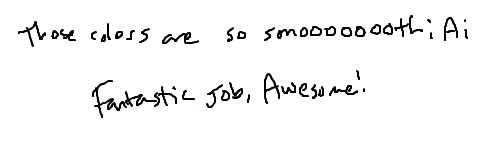 Those colors are so smoooooooothi Ai
Fantastic Job, Awesome!